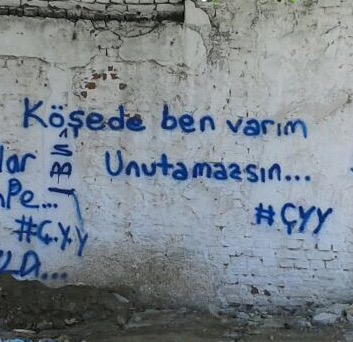 Köşede ben varım
Unutamazsın...
#ÇYY
lar
Pe...
#Ç.Y.Y
LD...